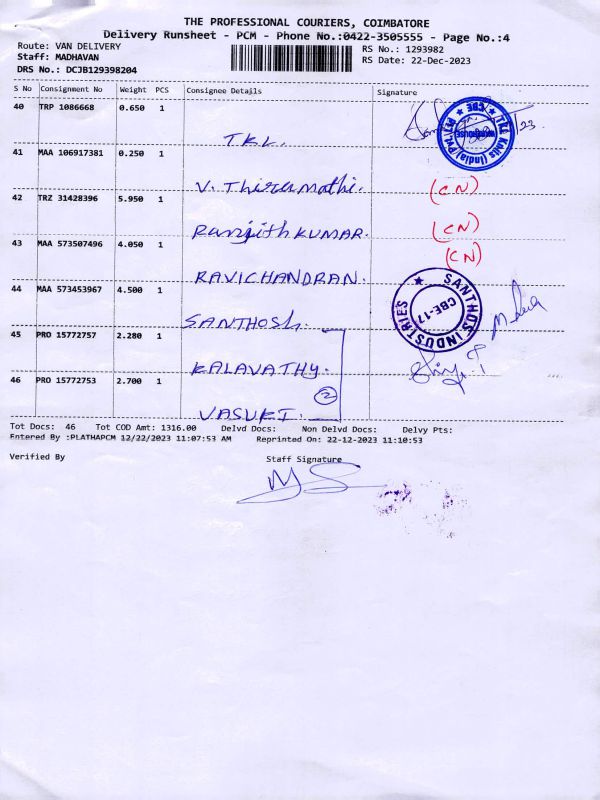 THE PROFESSIONAL COURIERS, COIMBATORE
Delivery Runsheet - PCM - Phone No.:0422-3505555 - Page No.:4
Route: VAN DELIVERY RS No.: 1293982
Staff: MADHAVAN RS Date: 22-Dec-2023
DRS No.: DCJB129398204
S No Consignment No Weight PCS Consignee Details Signature
40 TRP 1086668 0.650 1
T.K.L. 23
41 MAA 106917381 0.250 1
V. Thirumathi. (CN)
42 TRZ 31428396 5.950 1
Ranjith KUMAR. (CN)
43 MAA 573507496 4.050 1 (CN)
RAVICHANDRAN.
44 MAA 573453967 4.500 1
SANTHOSH
SANTHOS INDUSTRIES
CBE-17
45 PRO 15772757 2.280 1
KALAVATHY.
2
46 PRO 15772753 2.700 1
VASUKI.
Tot Docs: 46 Tot COD Amt: 1316.00 Delvd Docs: Non Delvd Docs: Delvy Pts:
Entered By :PLATHAPCM 12/22/2023 11:07:53 AM Reprinted On: 22-12-2023 11:10:53
Verified By Staff Signature